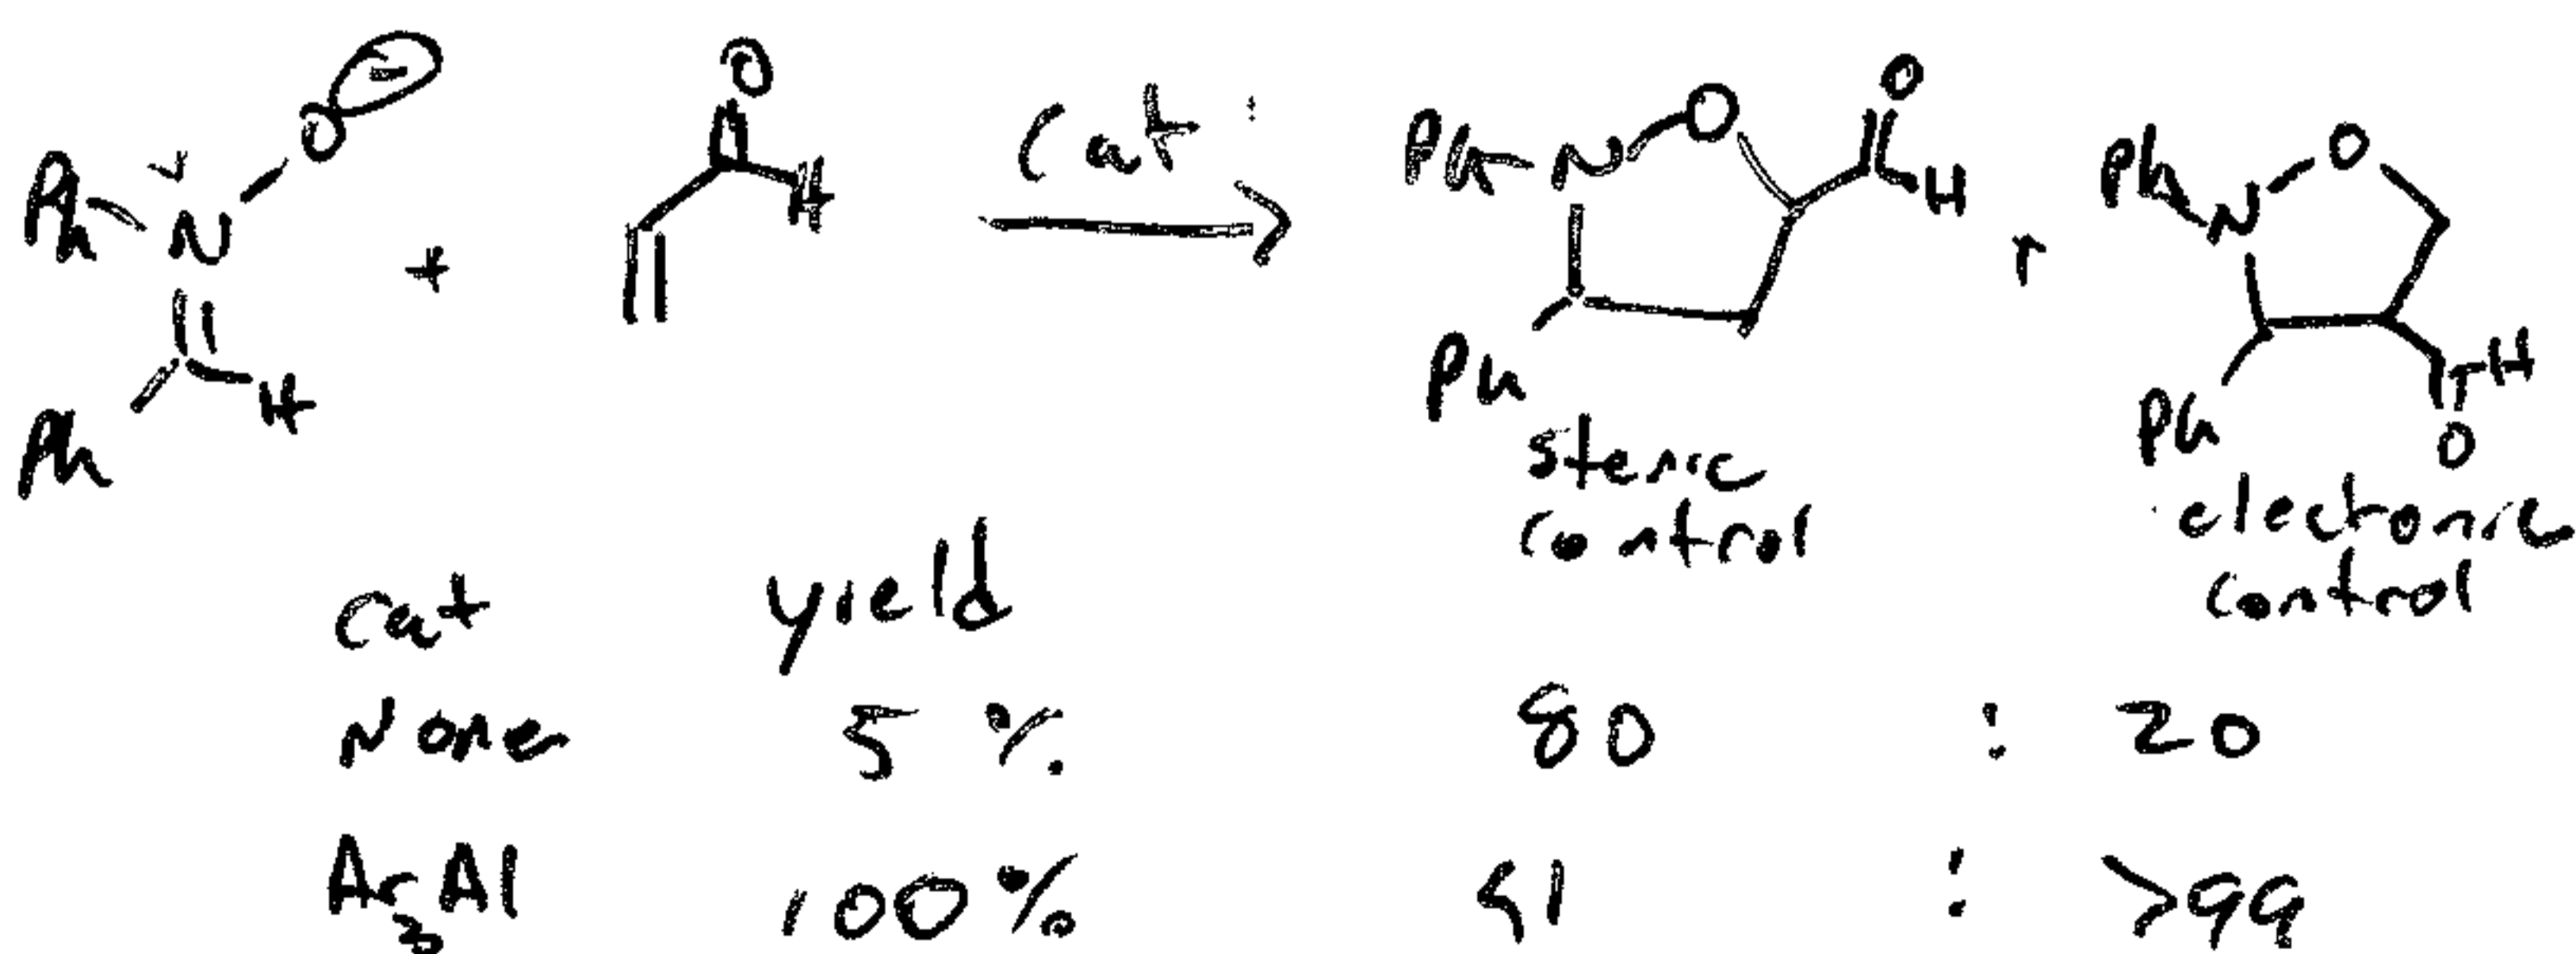 Ph N O
+
O
H
Cat
Ph N O O H
+
Ph N O
Ph H
Ph
Ph H O
steric control
electronic control
Cat yield
None 5 % 80 : 20
Ar3Al 100 % <1 : >99